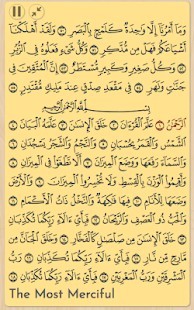 وَمَا أَمْرُنَا إِلَّا وَاحِدَةٌ كَلَمْحٍ بِالْبَصَرِ ۝ وَلَقَدْ أَهْلَكْنَا
أَشْيَاعَكُمْ فَهَلْ مِن مُّدَّكِرٍ ۝ وَكُلُّ شَيْءٍ فَعَلُوهُ فِي الزُّبُرِ
۝ وَكُلُّ صَغِيرٍ وَكَبِيرٍ مُّسْتَطَرٌ ۝ إِنَّ الْمُتَّقِينَ فِي
جَنَّاتٍ وَنَهَرٍ ۝ فِي مَقْعَدِ صِدْقٍ عِندَ مَلِيكٍ مُّقْتَدِرٍ ۝
بِسْمِ اللَّهِ الرَّحْمَٰنِ الرَّحِيمِ
الرَّحْمَٰنُ ۝ عَلَّمَ الْقُرْآنَ ۝ خَلَقَ الْإِنسَانَ ۝ عَلَّمَهُ الْبَيَانَ
۝ الشَّمْسُ وَالْقَمَرُ بِحُسْبَانٍ ۝ وَالنَّجْمُ وَالشَّجَرُ يَسْجُدَانِ
۝ وَالسَّمَاءَ رَفَعَهَا وَوَضَعَ الْمِيزَانَ ۝ أَلَّا تَطْغَوْا فِي الْمِيزَانِ
۝ وَأَقِيمُوا الْوَزْنَ بِالْقِسْطِ وَلَا تُخْسِرُوا الْمِيزَانَ ۝ وَالْأَرْضَ
وَضَعَهَا لِلْأَنَامِ ۝ فِيهَا فَاكِهَةٌ وَالنَّخْلُ ذَاتُ الْأَكْمَامِ
۝ وَالْحَبُّ ذُو الْعَصْفِ وَالرَّيْحَانُ ۝ فَبِأَيِّ آلَاءِ رَبِّكُمَا تُكَذِّبَانِ
۝ خَلَقَ الْإِنسَانَ مِن صَلْصَالٍ كَالْفَخَّارِ ۝ وَخَلَقَ الْجَانَّ مِن
مَّارِجٍ مِّن نَّارٍ ۝ فَبِأَيِّ آلَاءِ رَبِّكُمَا تُكَذِّبَانِ ۝ رَبُّ
الْمَشْرِقَيْنِ وَرَبُّ الْمَغْرِبَيْنِ ۝ فَبِأَيِّ آلَاءِ رَبِّكُمَا تُكَذِّبَانِ
The Most Merciful